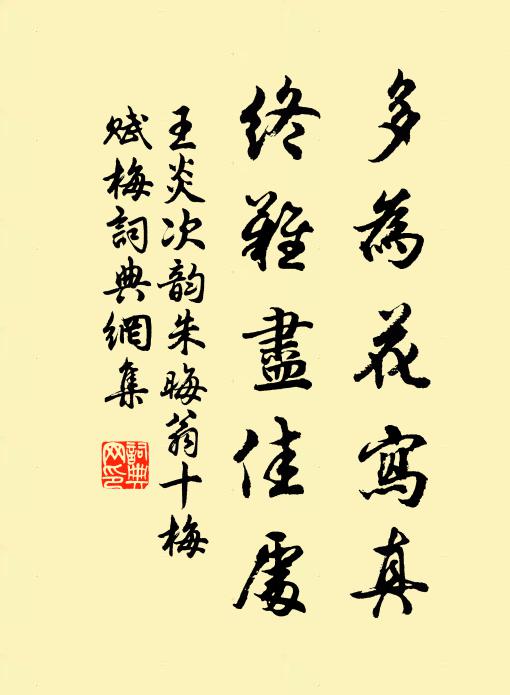 多為花寫真
終難盡佳處
王炎次韵朱晦翁十梅
賦梅詞典網集
詞典
网印